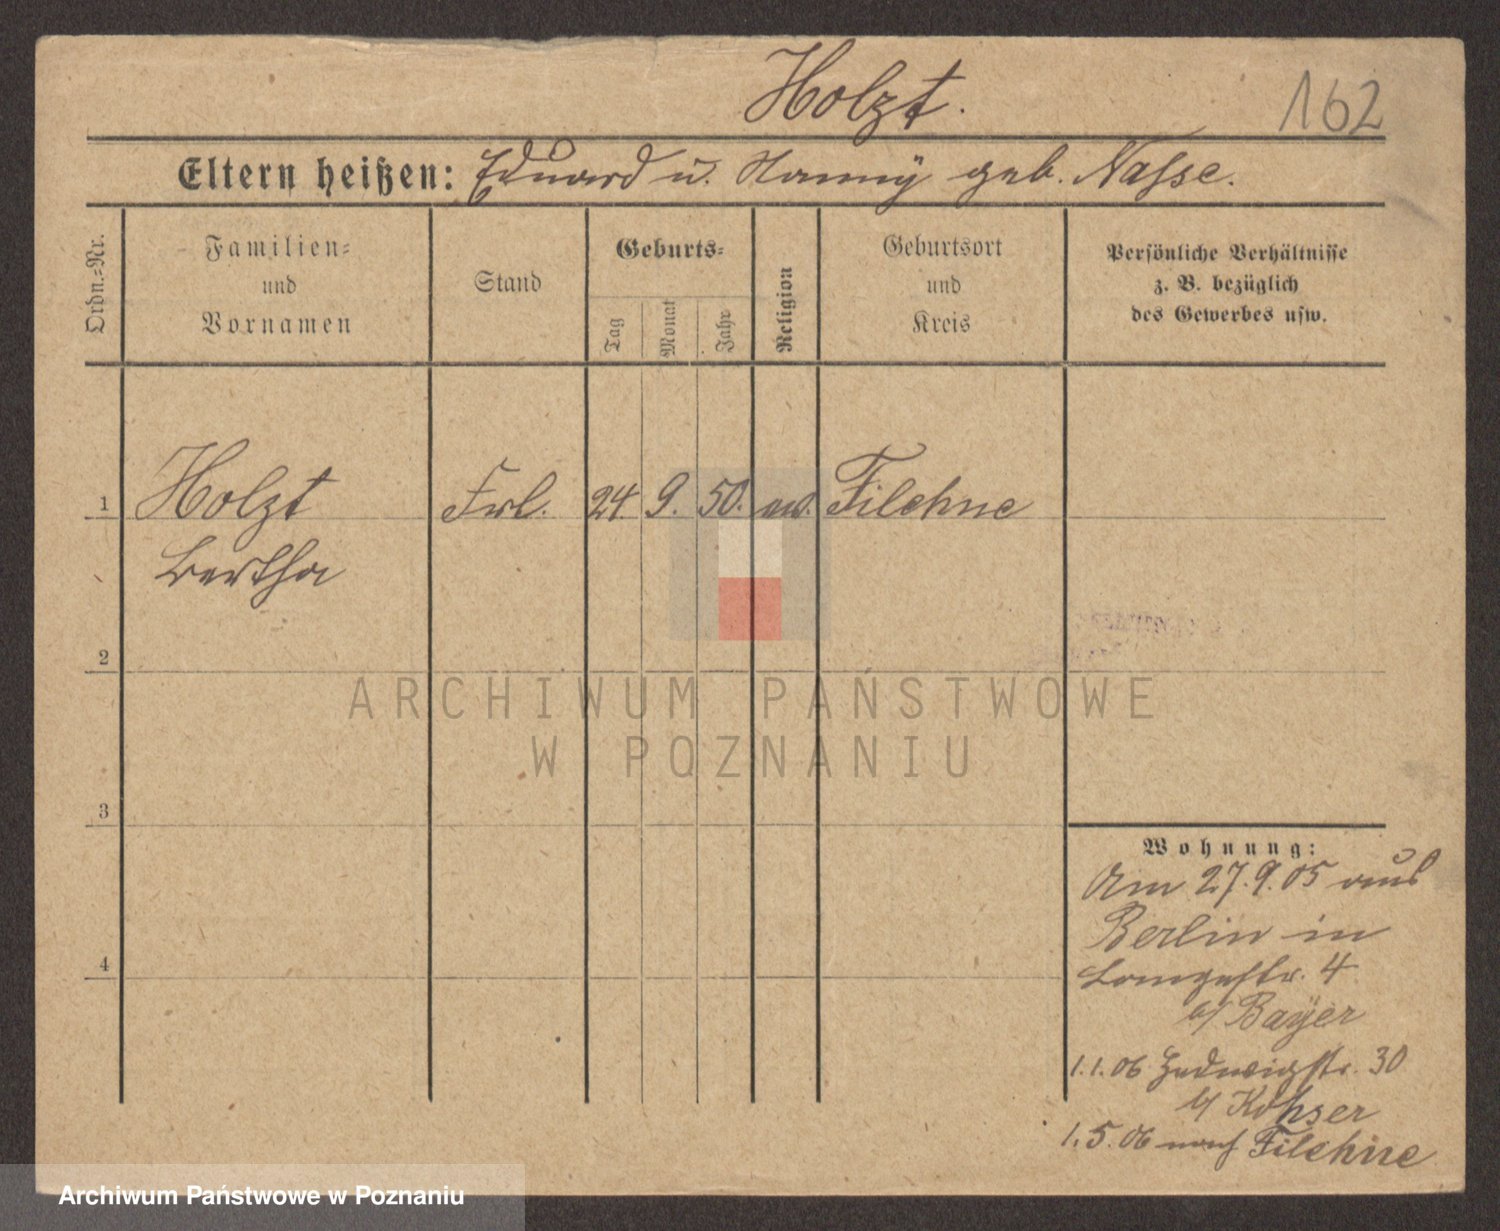 Holzt.
162
Eltern heißen: Eduard u. Nanny geb. Nasse.
Ordn.-Nr.
Familien-
und
Vornamen
Stand
Geburts-
Tag
Monat
Jahr
Religion
Geburtsort
und
Kreis
Persönliche Verhältnisse
z. B. bezüglich
des Gewerbes usw.
1 Holzt Frl. 24. 9. 50. ev. Filehne
Bertha
2
3
4
ARCHIWUM PAŃSTWOWE
W POZNANIU
Wohnung:
Am 27.9.05 aus
Berlin in
Langestr. 4
b/ Bayer
1.1.06 Hedwigstr. 30
b/ Kohser
1.5.06 nach Filehne
Archiwum Państwowe w Poznaniu